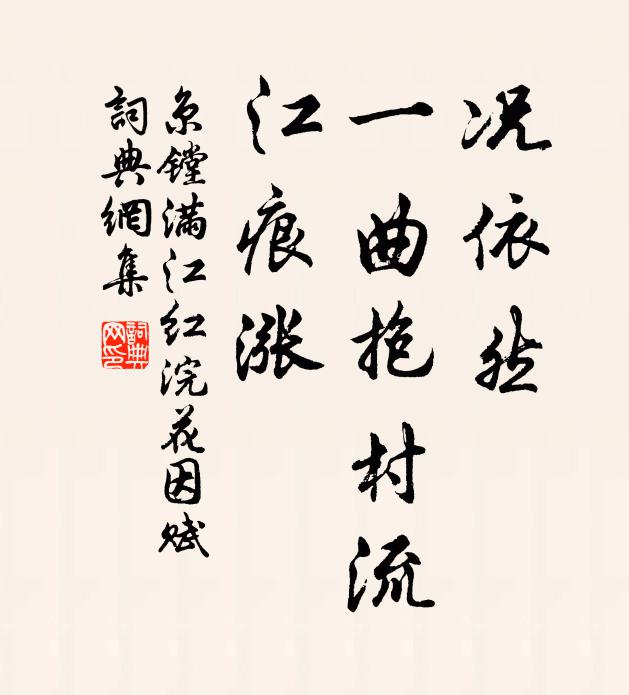 况依然
一曲抱村流
江痕涨
京镗满江红浣花因赋
詞典網集
詞典
网印